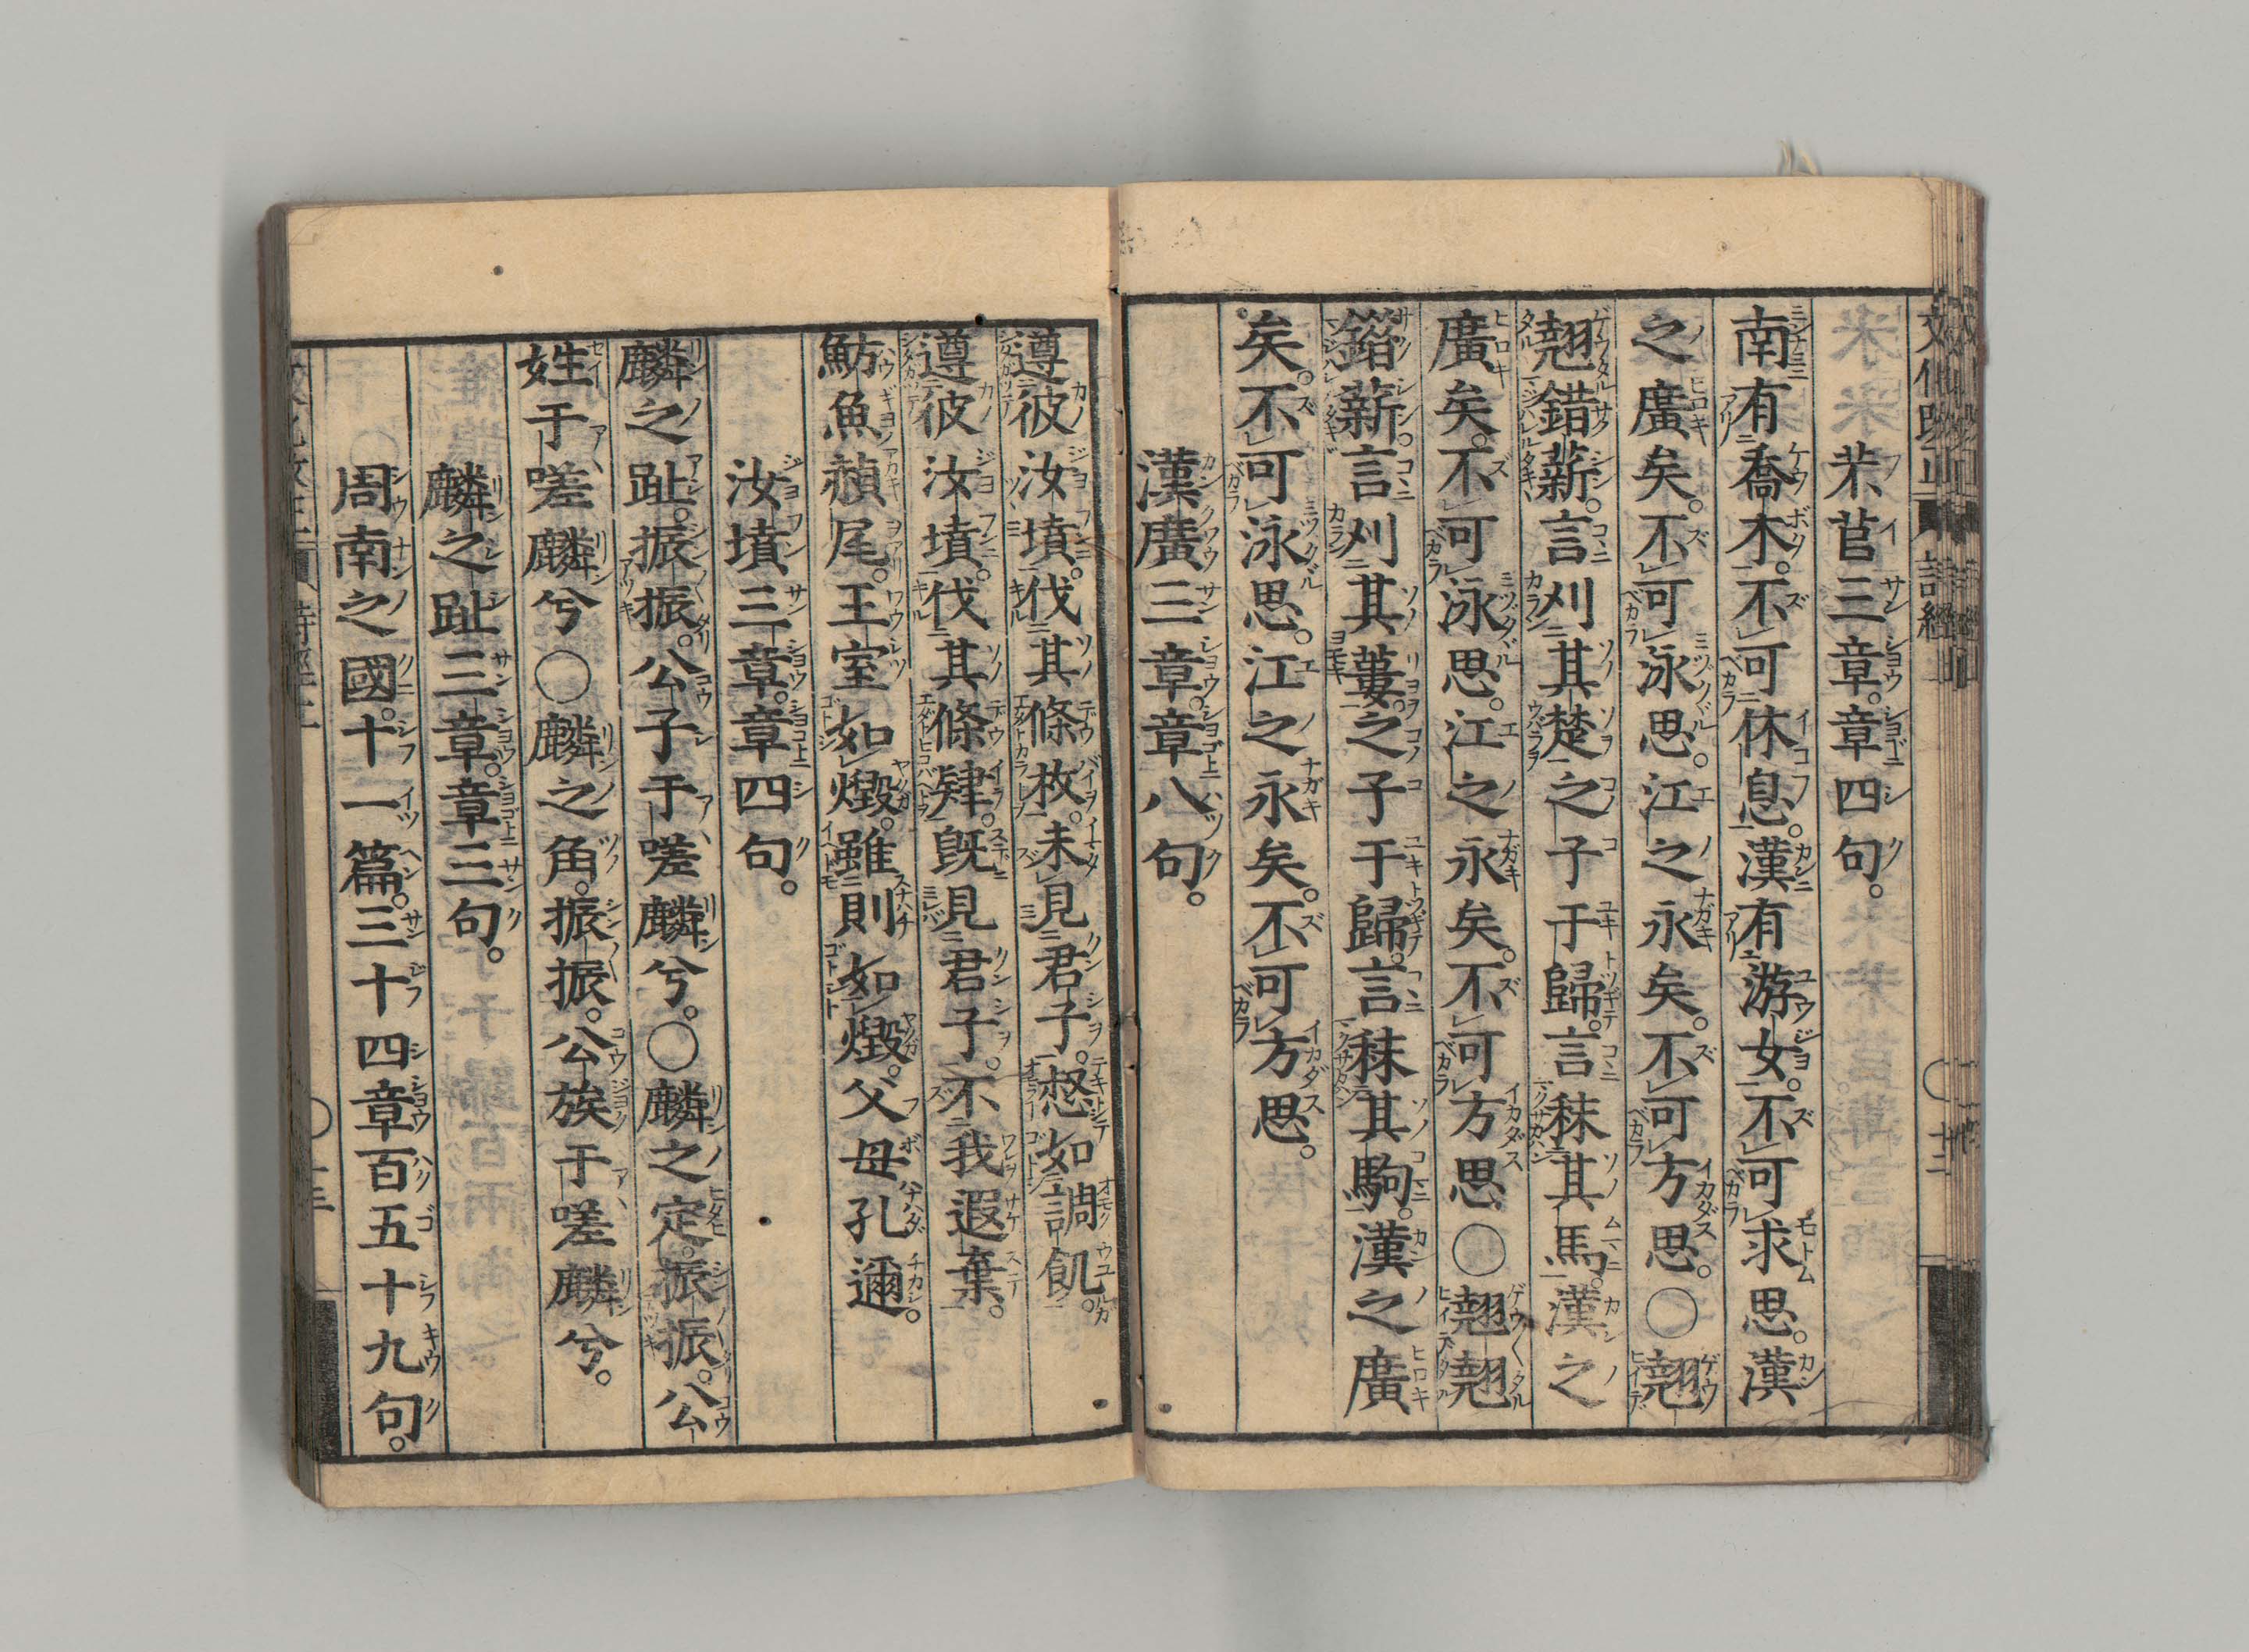 芣苢三章。章四句。
南有喬木。不可休息。漢有游女。不可求思。漢
之廣矣。不可泳思。江之永矣。不可方思。〇翹
翹錯薪。言刈其楚。之子于歸。言秣其馬。漢之
廣矣。不可泳思。江之永矣。不可方思〇翹翹
錯薪。言刈其蔞。之子于歸。言秣其駒。漢之廣
矣。不可泳思。江之永矣。不可方思。
漢廣三章。章八句。
遵彼汝墳。伐其條枚。未見君子。惄如調飢。
遵彼汝墳。伐其條肄。既見君子。不我遐棄。
魴魚赬尾。王室如燬。雖則如燬。父母孔邇。
汝墳三章。章四句。
麟之趾。振振。公子于嗟麟兮。〇麟之定。振振。公
姓于嗟麟兮〇麟之角。振振。公族于嗟麟兮。
麟之趾三章。章三句。
周南之國。十一篇。三十四章百五十九句。